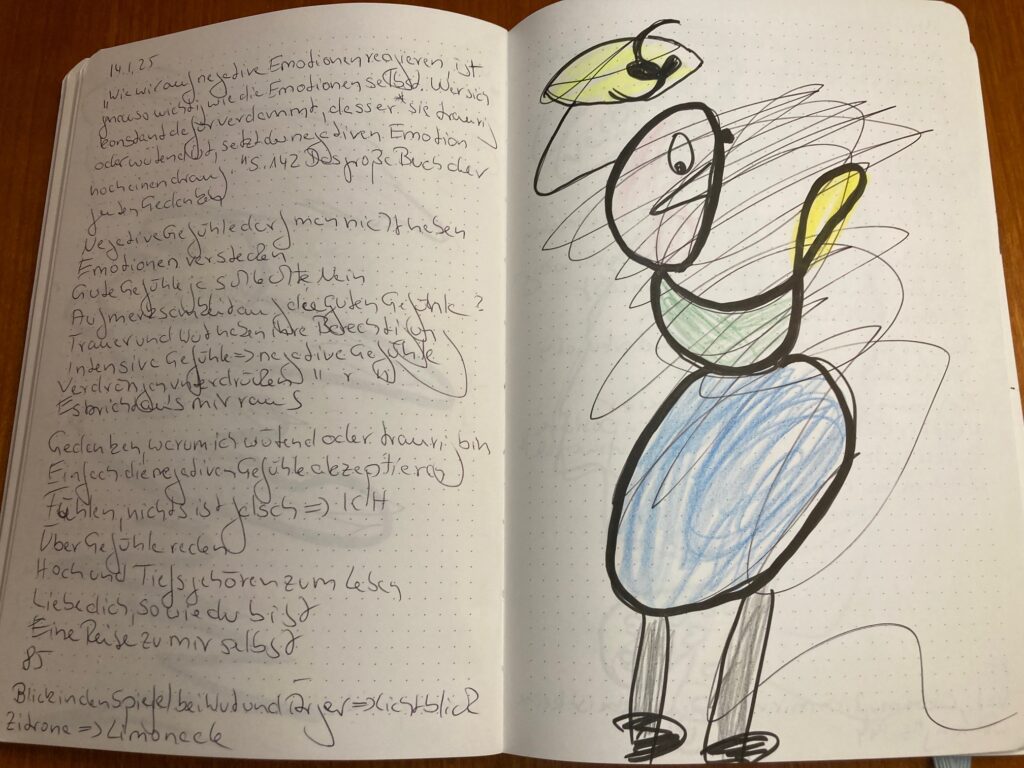 14.1.25
"Wie wir auf negative Emotionen reagieren, ist
genauso wichtig wie die Emotionen selbst. Wer sich
konstant dafür verdammt, dass er* sie traurig
oder wütend ist, setzt der negativen Emotion
noch einen drauf." S. 142 Das große Buch der
guten Gedanken
Negative Gefühle darf man nicht haben
Emotionen verstecken
Gute Gefühle ja schlechte Nein
Aufmerksamkeit auf die guten Gefühle?
Trauer und Wut haben ihre Berechtigung
Intensive Gefühle => negative Gefühle
Verdrängen unterdrücken "
Es bricht aus mir raus
Gedanken, warum ich wütend oder traurig bin
Einfach die negativen Gefühle akzeptieren
Fühlen, nichts ist falsch => ICH
Über Gefühle reden
Hoch und Tiefs gehören zum Leben
Liebe dich, so wie du bist
Eine Reise zu mir selbst
85
Blick in den Spiegel bei Wut und Ärger => Lichtblick
Zidrone => Limoneck